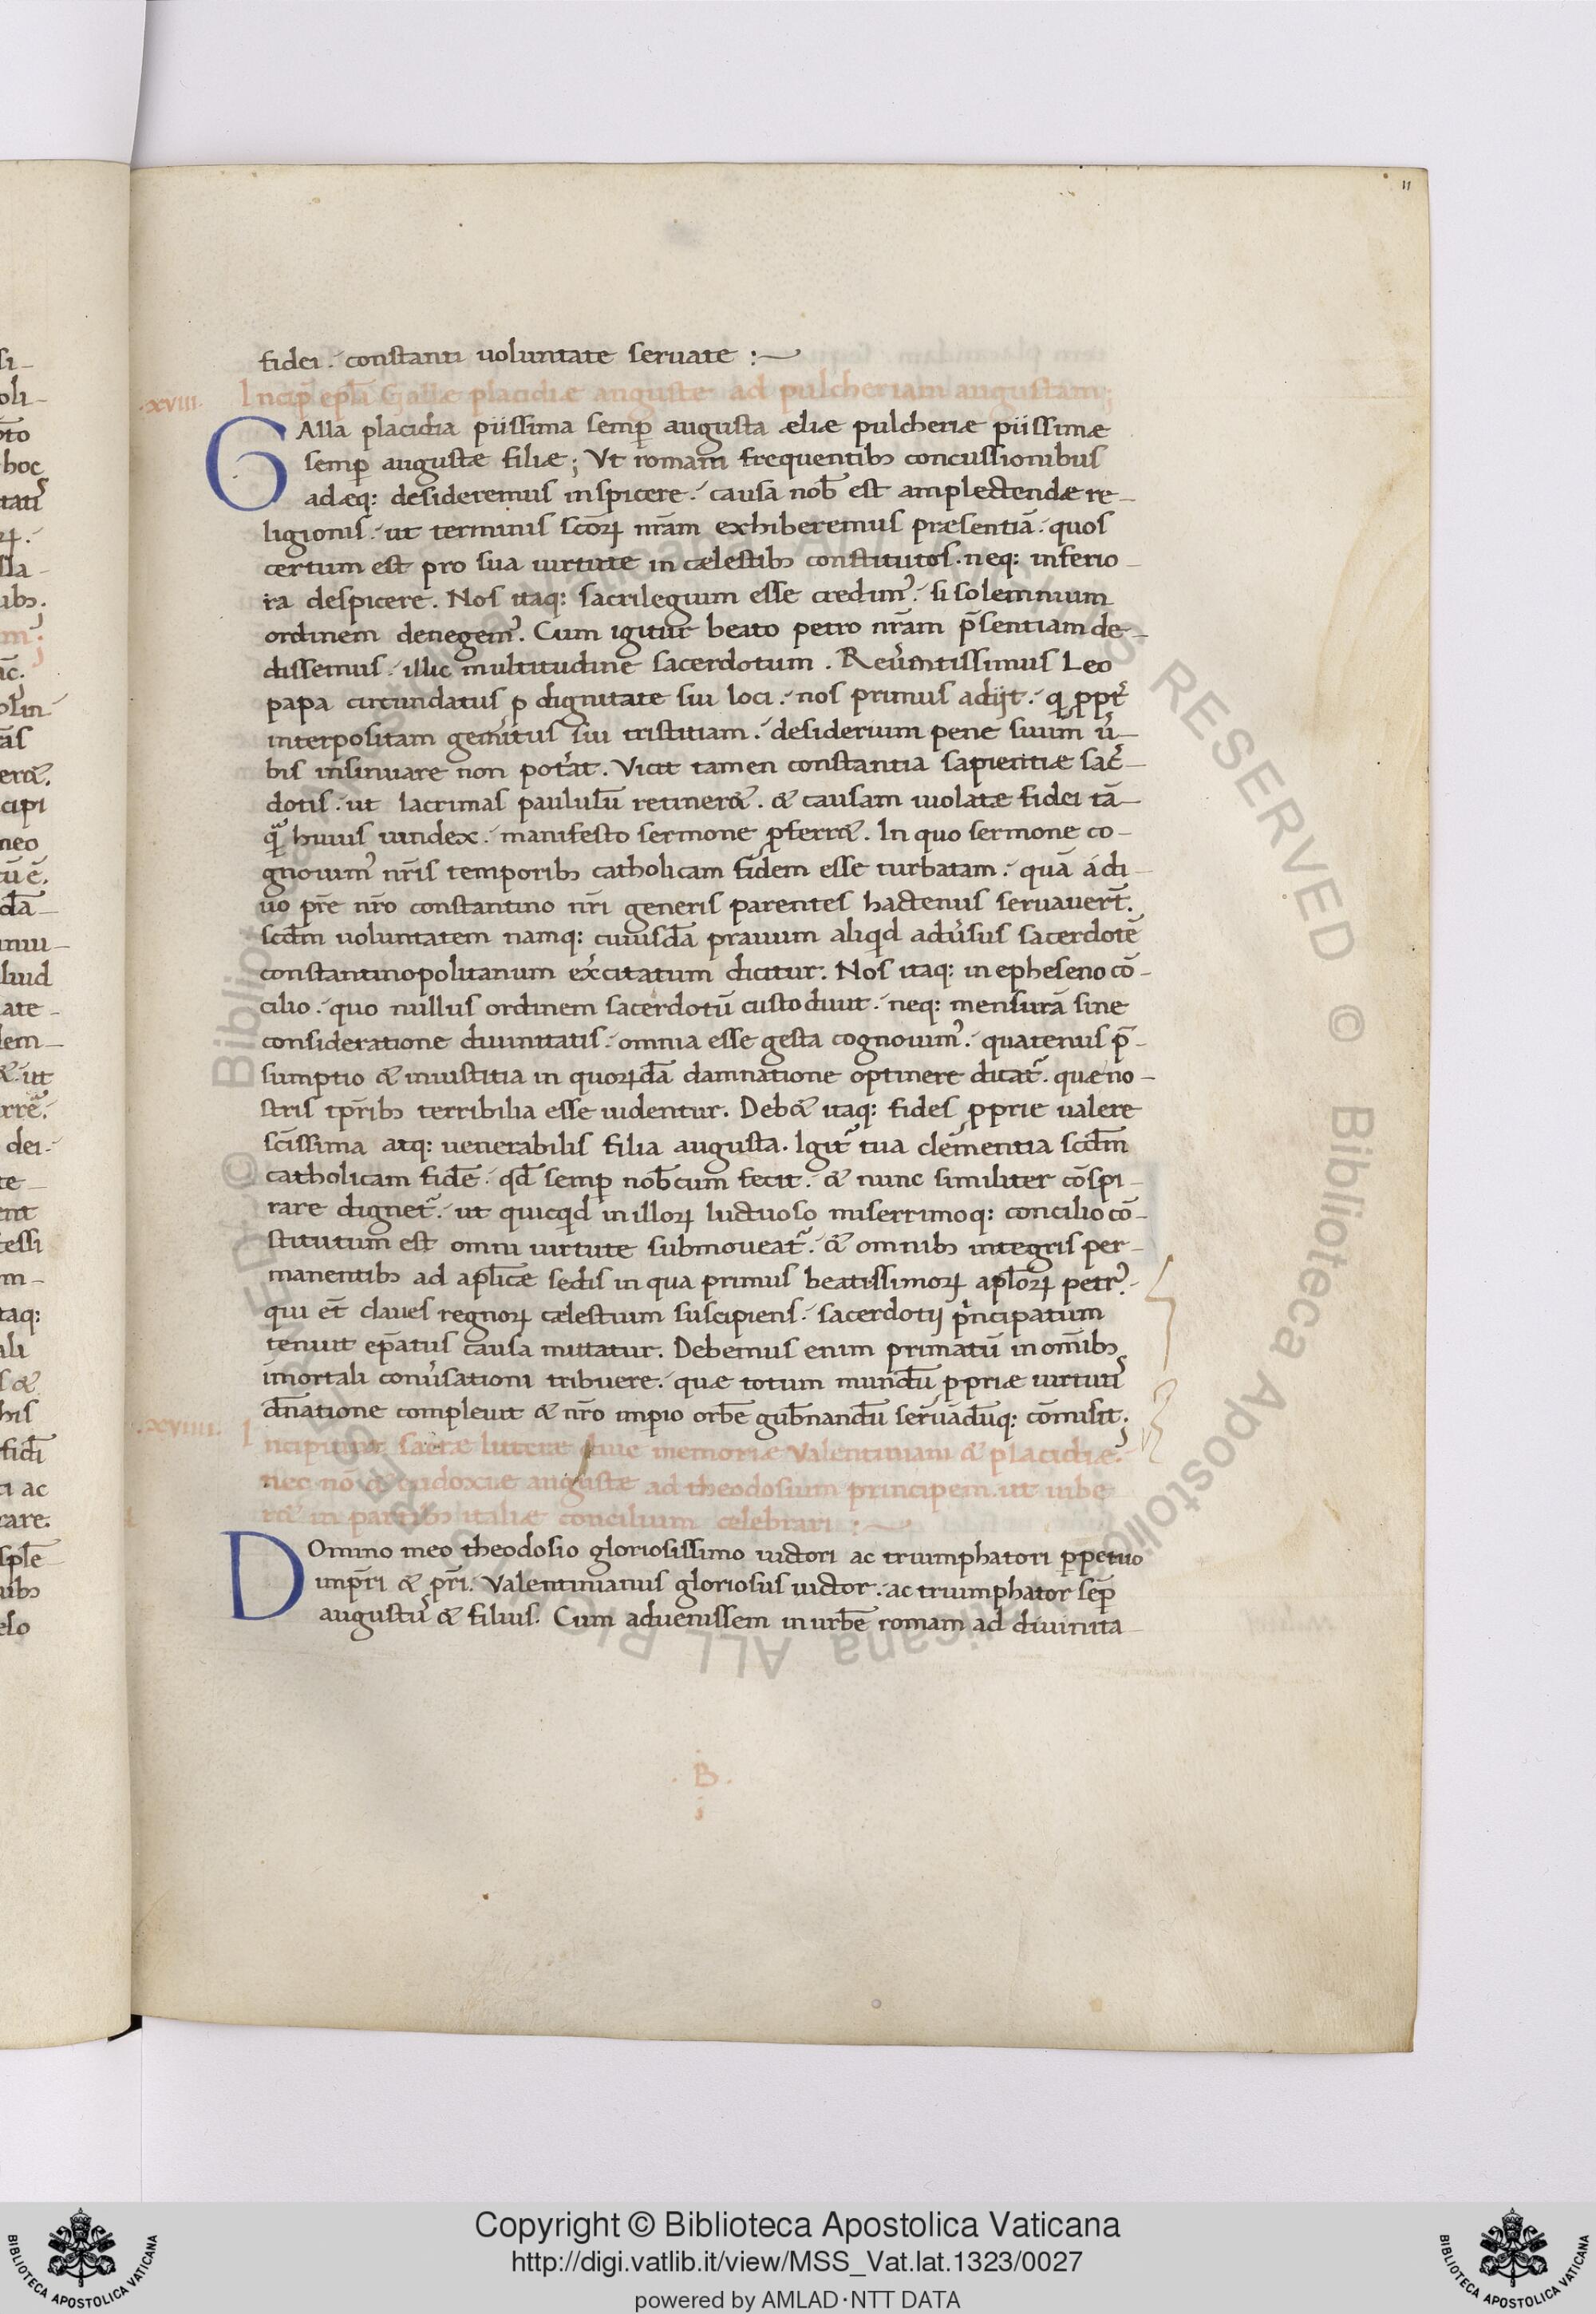 11
fidei. constanti uoluntate seruate :~
.xviii. Incip̄ epl̄a Gallæ placidiæ augustæ ad pulcheriam augustam;
GAlla placidia piissima semp̄ augusta æliæ pulcheriæ piissimæ
semp̄ augustæ filiæ; Vt romam frequentibꝫ concussionibus
adæq: desideremus inspicere. causa nob̄ est amplectendæ re-
ligionis. ut terminis sc̄oꝝ nr̄am exhiberemus præsentiā. quos
certum est pro sua uirtute in cælestibꝫ constitutos. neq: inferio-
ra despicere. Nos itaq: sacrilegium esse credimꝰ. si solemnium
ordinem denegemꝰ. Cum igitur beato petro nr̄am p̄sentiam de-
dissemus. illic multitudine sacerdotum. Reuer̄ntissimus Leo
papa circundatus ꝑ dignitate sui loci. nos primus adijt. qͥ ꝓpt̄
interpositam gemitus sui tristitiam. desiderium pene suum ū-
bis insinuare non pot̄at. Vicit tamen constantia sapientiæ sac̄-
dotis. ut lacrimas paululū retiner&. & causam uiolatæ fidei tā-
qͣ huius uindex. manifesto sermone ꝓferr&. In quo sermone co-
gnouimꝰ nr̄is temporibꝫ catholicam fidem esse turbatam. quā á di-
uo pr̄e nr̄o constantino nr̄i generis parentes hactenus seruauer̄t.
scd̄m uoluntatem namq: cuiusdā prauum aliqͥd adūsus sacerdotē
constantinopolitanum excitatum dicitur. Nos itaq: in epheseno cō-
cilio. quo nullus ordinem sacerdotū custodiuit. neq: mensurā sine
consideratione diuinitatis. omnia esse gesta cognouimꝰ. quatenus p̄-
sumptio & iniustitia in quoꝝdā damnatione optinere dicat̃. quæ no-
stris tp̄ribꝫ terribilia esse uidentur. Deb& itaq: fides ꝓprie ualere
sc̄issima atq: uenerabilis filia augusta. Igit̃ tua clementia scd̄m
catholicam fidē. qd̄ semp̄ nob̄cum fecit. & nunc similiter cōspi-
rare dignet̃. ut quicqͥd in illoꝝ luctuoso miserrimoq: concilio cō-
stitutum est omni uirtute submoueat̃. & omnibꝫ integris per-
manentibꝫ ad apl̄icæ sedis in qua primus beatissimoꝝ apl̄oꝝ petrꝰ.
qui et̄ claues regnoꝝ cælestium suscipiens. sacerdotij pͥncipatum
tenuit ep̄atus causa mittatur. Debemus enim primatū in om̄ibꝫ
īmortali conūsationi tribuere. quæ totum mundū ꝓpriæ uirtutis
d̄natione compleuit & nr̄o impio orbē gub̄nandū seruādūq: cōmisit;
.xviiii. Incipiunt sacræ litteræ diue memoriæ Valentiniani & placidiæ.
nec nō & eudoxiæ augustæ ad theodosium principem. ut iube-
r& in partibꝫ italiæ concilium celebrari :~
DOmino meo theodosio gloriosissimo uictori ac triumphatori ꝑpetuo
imp̄ri & pr̄i. Valentinianus gloriosus uictor. ac triumphator sēp̄
augustus & filius. Cum aduenissem in urbē romam ad diuinita-
.B.
Copyright © Biblioteca Apostolica Vaticana
http://digi.vatlib.it/view/MSS_Vat.lat.1323/0027
powered by AMLAD·NTT DATA